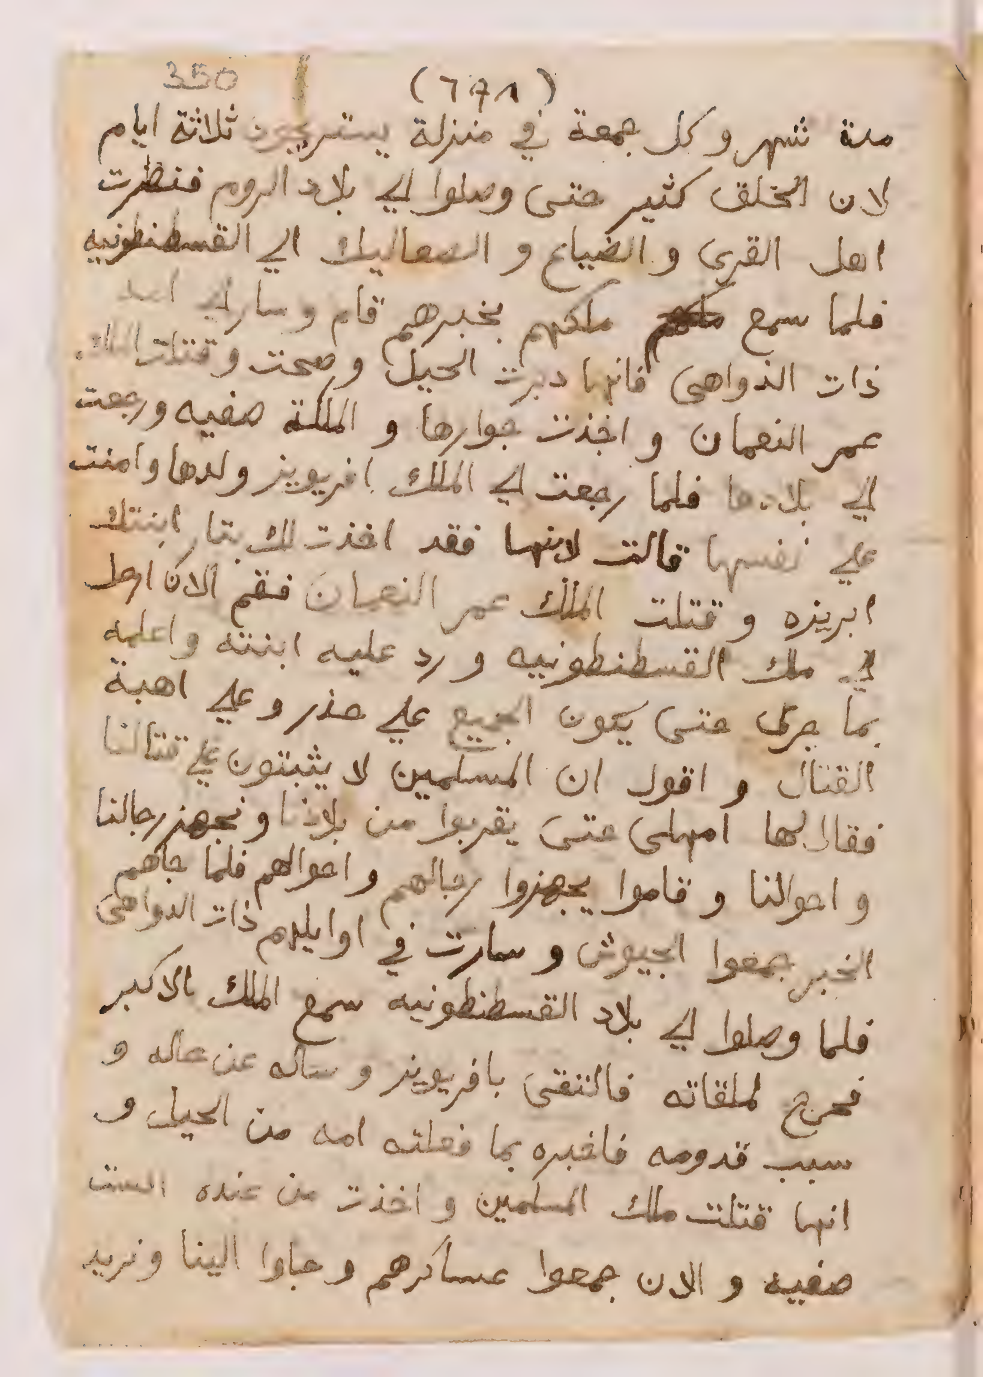 350 (٦٩٨)
مدة شهر وكل جمعة في منزلة يستريحون ثلاثة ايام
لان الخلق كثير حتى وصلوا الي بلاد الروم فنظرت
اهل القري و الضياع و الصعاليك الي القسطنطونيه
فلما سمع ملكهم بخبرهم قام وسار الي
ذات الدواهى فانها دبرت الحيل وصحت وقتلت الملك
عمر النعمان و اخذت جوارها و الملكة صفيه ورجعت
الي بلادها فلما رجعت الي الملك افريويز ولدها وامنت
علي نفسها قالت لابنها فقد اخذت لك بتار ابنتك
ابريزه و قتلت الملك عمر النعمان فقم الان ارحل
الي ملك القسطنطونيه و رد عليه ابنته واعلمه
بما جرى حتى يكون الجميع علي حذر و علي اهبة
القتال و اقول ان المسلمين لا يثبتون علي قتالنا
فقال لها امهلى حتى يقربوا من بلادنا ونجهز رجالنا
و احوالنا و قاموا يجهزوا رجالهم واحوالهم فلما جاهم
الخبر جمعوا الجيوش و سارت في اوايلهم ذات الدواهى
فلما وصلوا الي بلاد القسطنطونيه سمع الملك الاكبر
فخرج لملقاته فالتقى بافريويز وساله عن حاله و
سبب قدومه فاخبره بما فعلته امه من الحيل و
انها قتلت ملك المسلمين و اخذت من عنده الست
صفيه و الان جمعوا عساكرهم وجاوا الينا ونريد